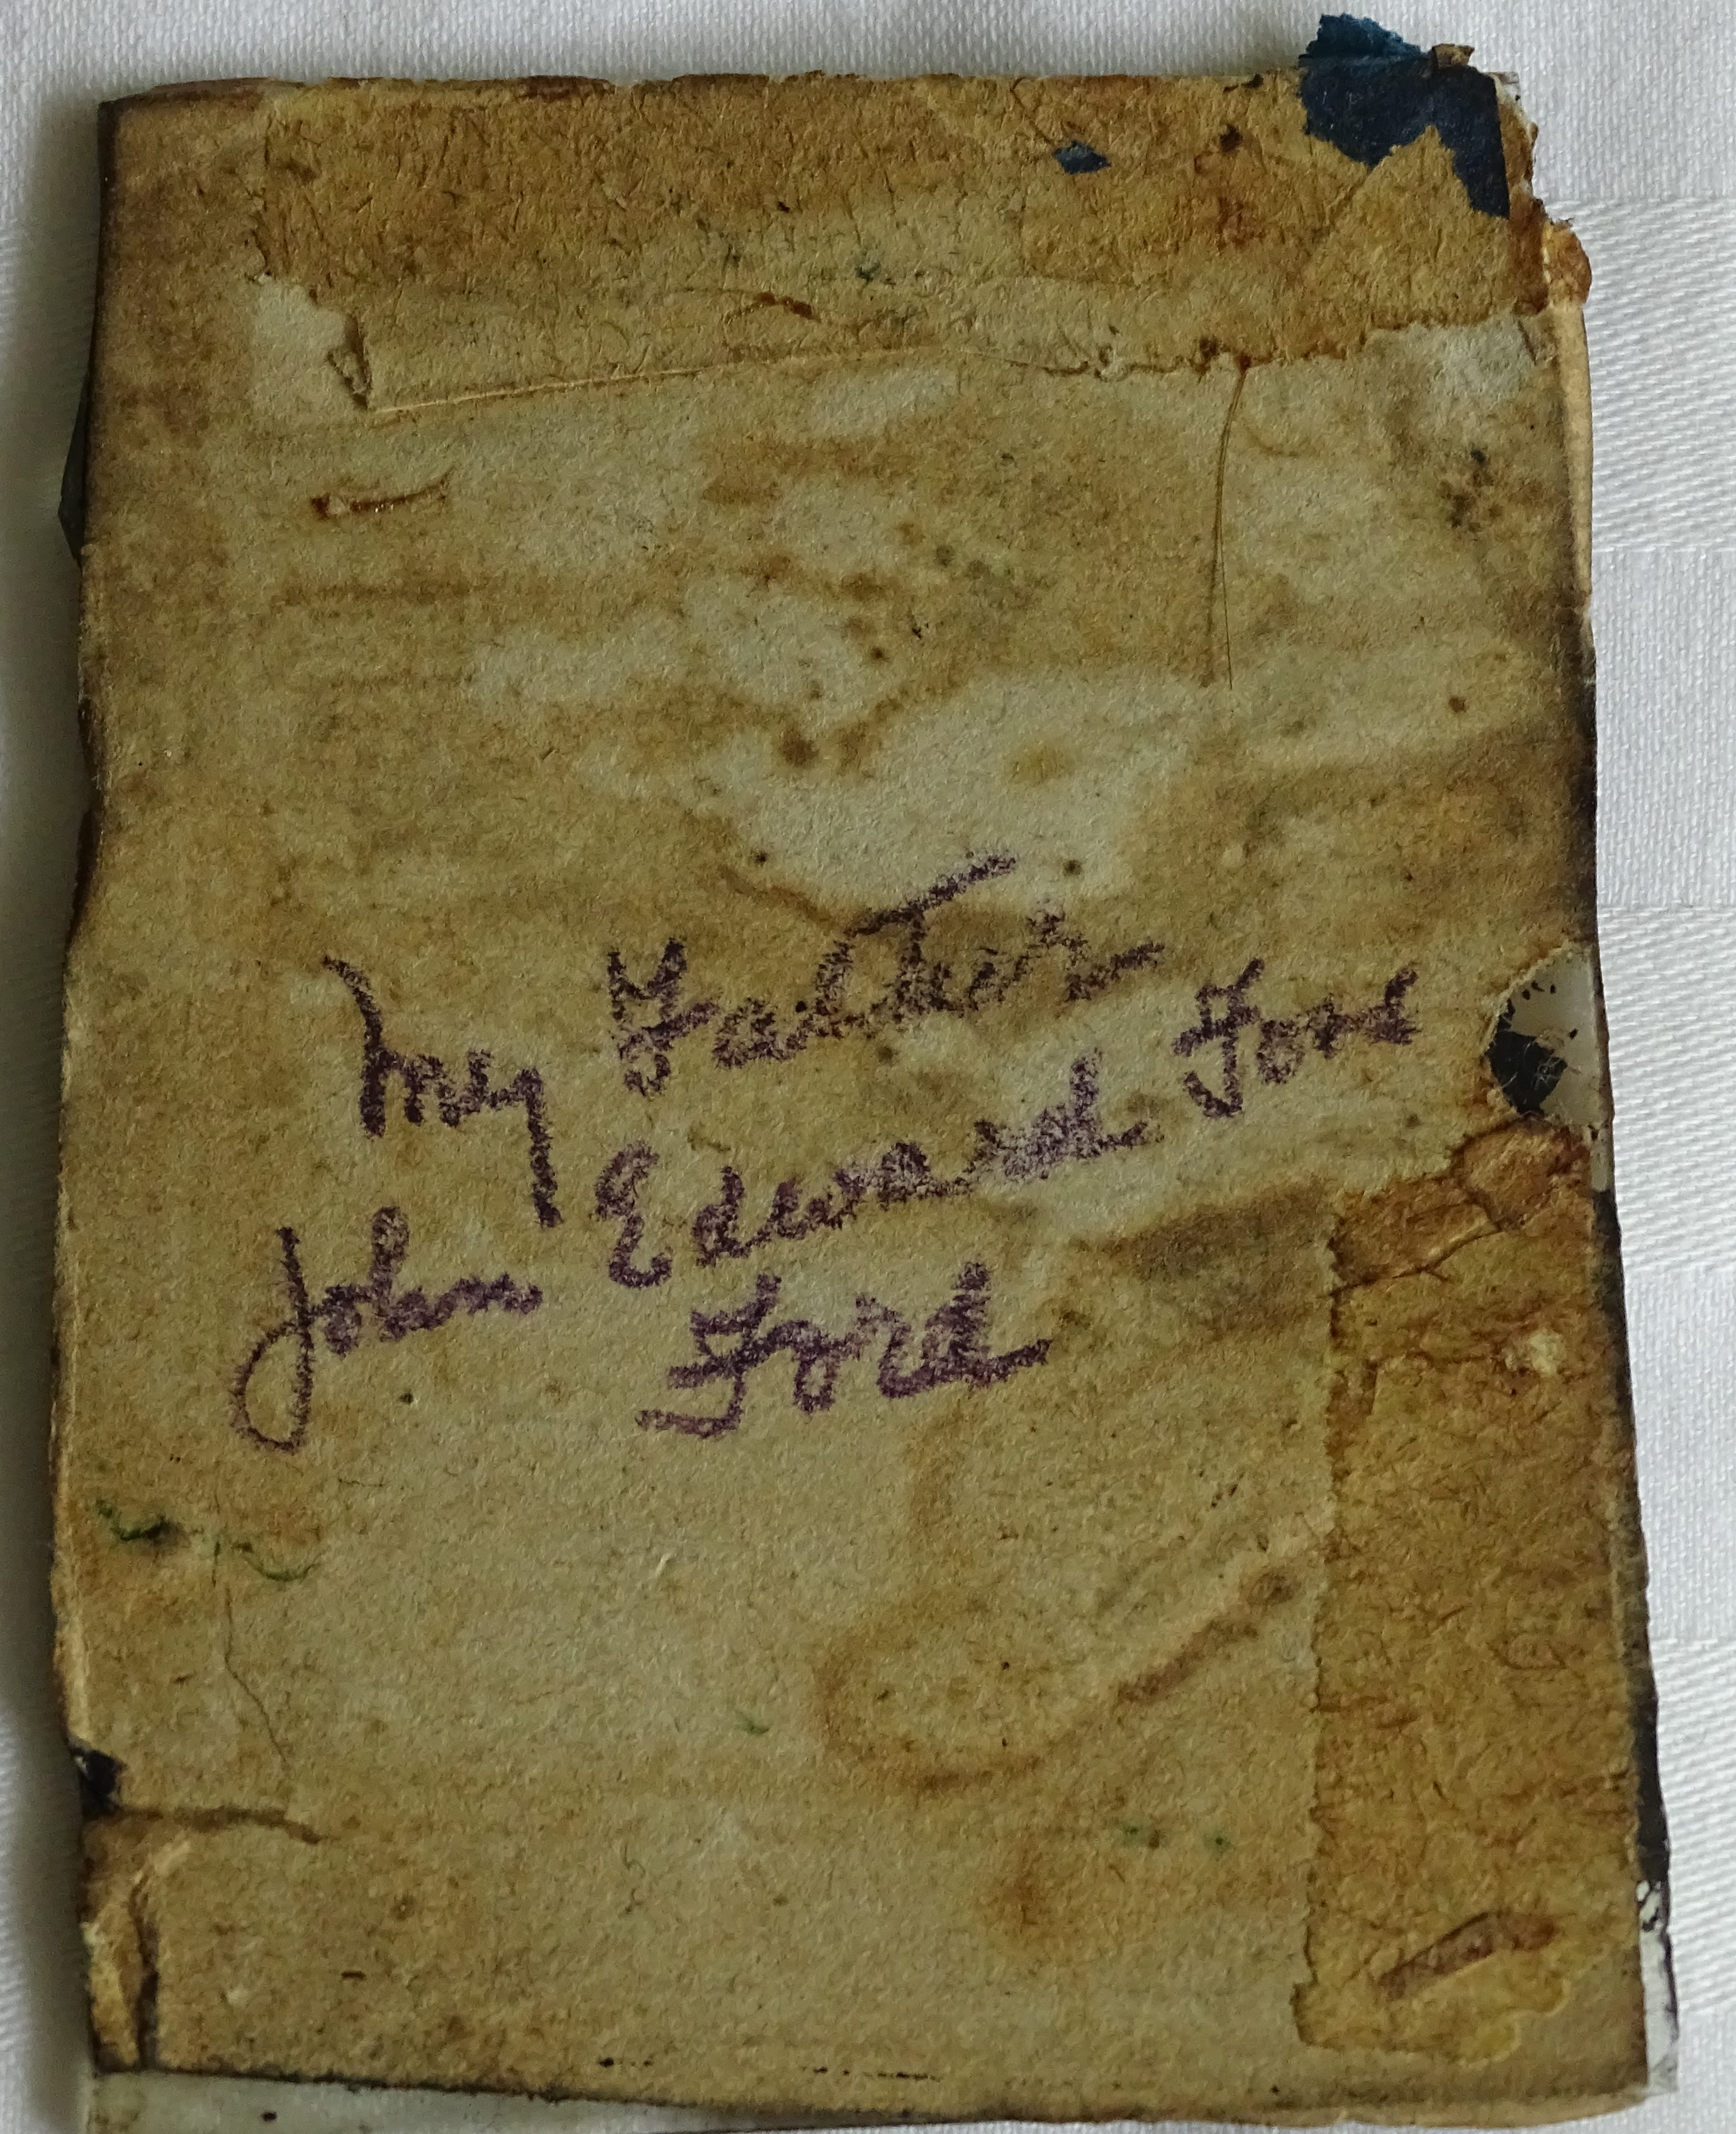 My Father
John Edward Ford
Ford